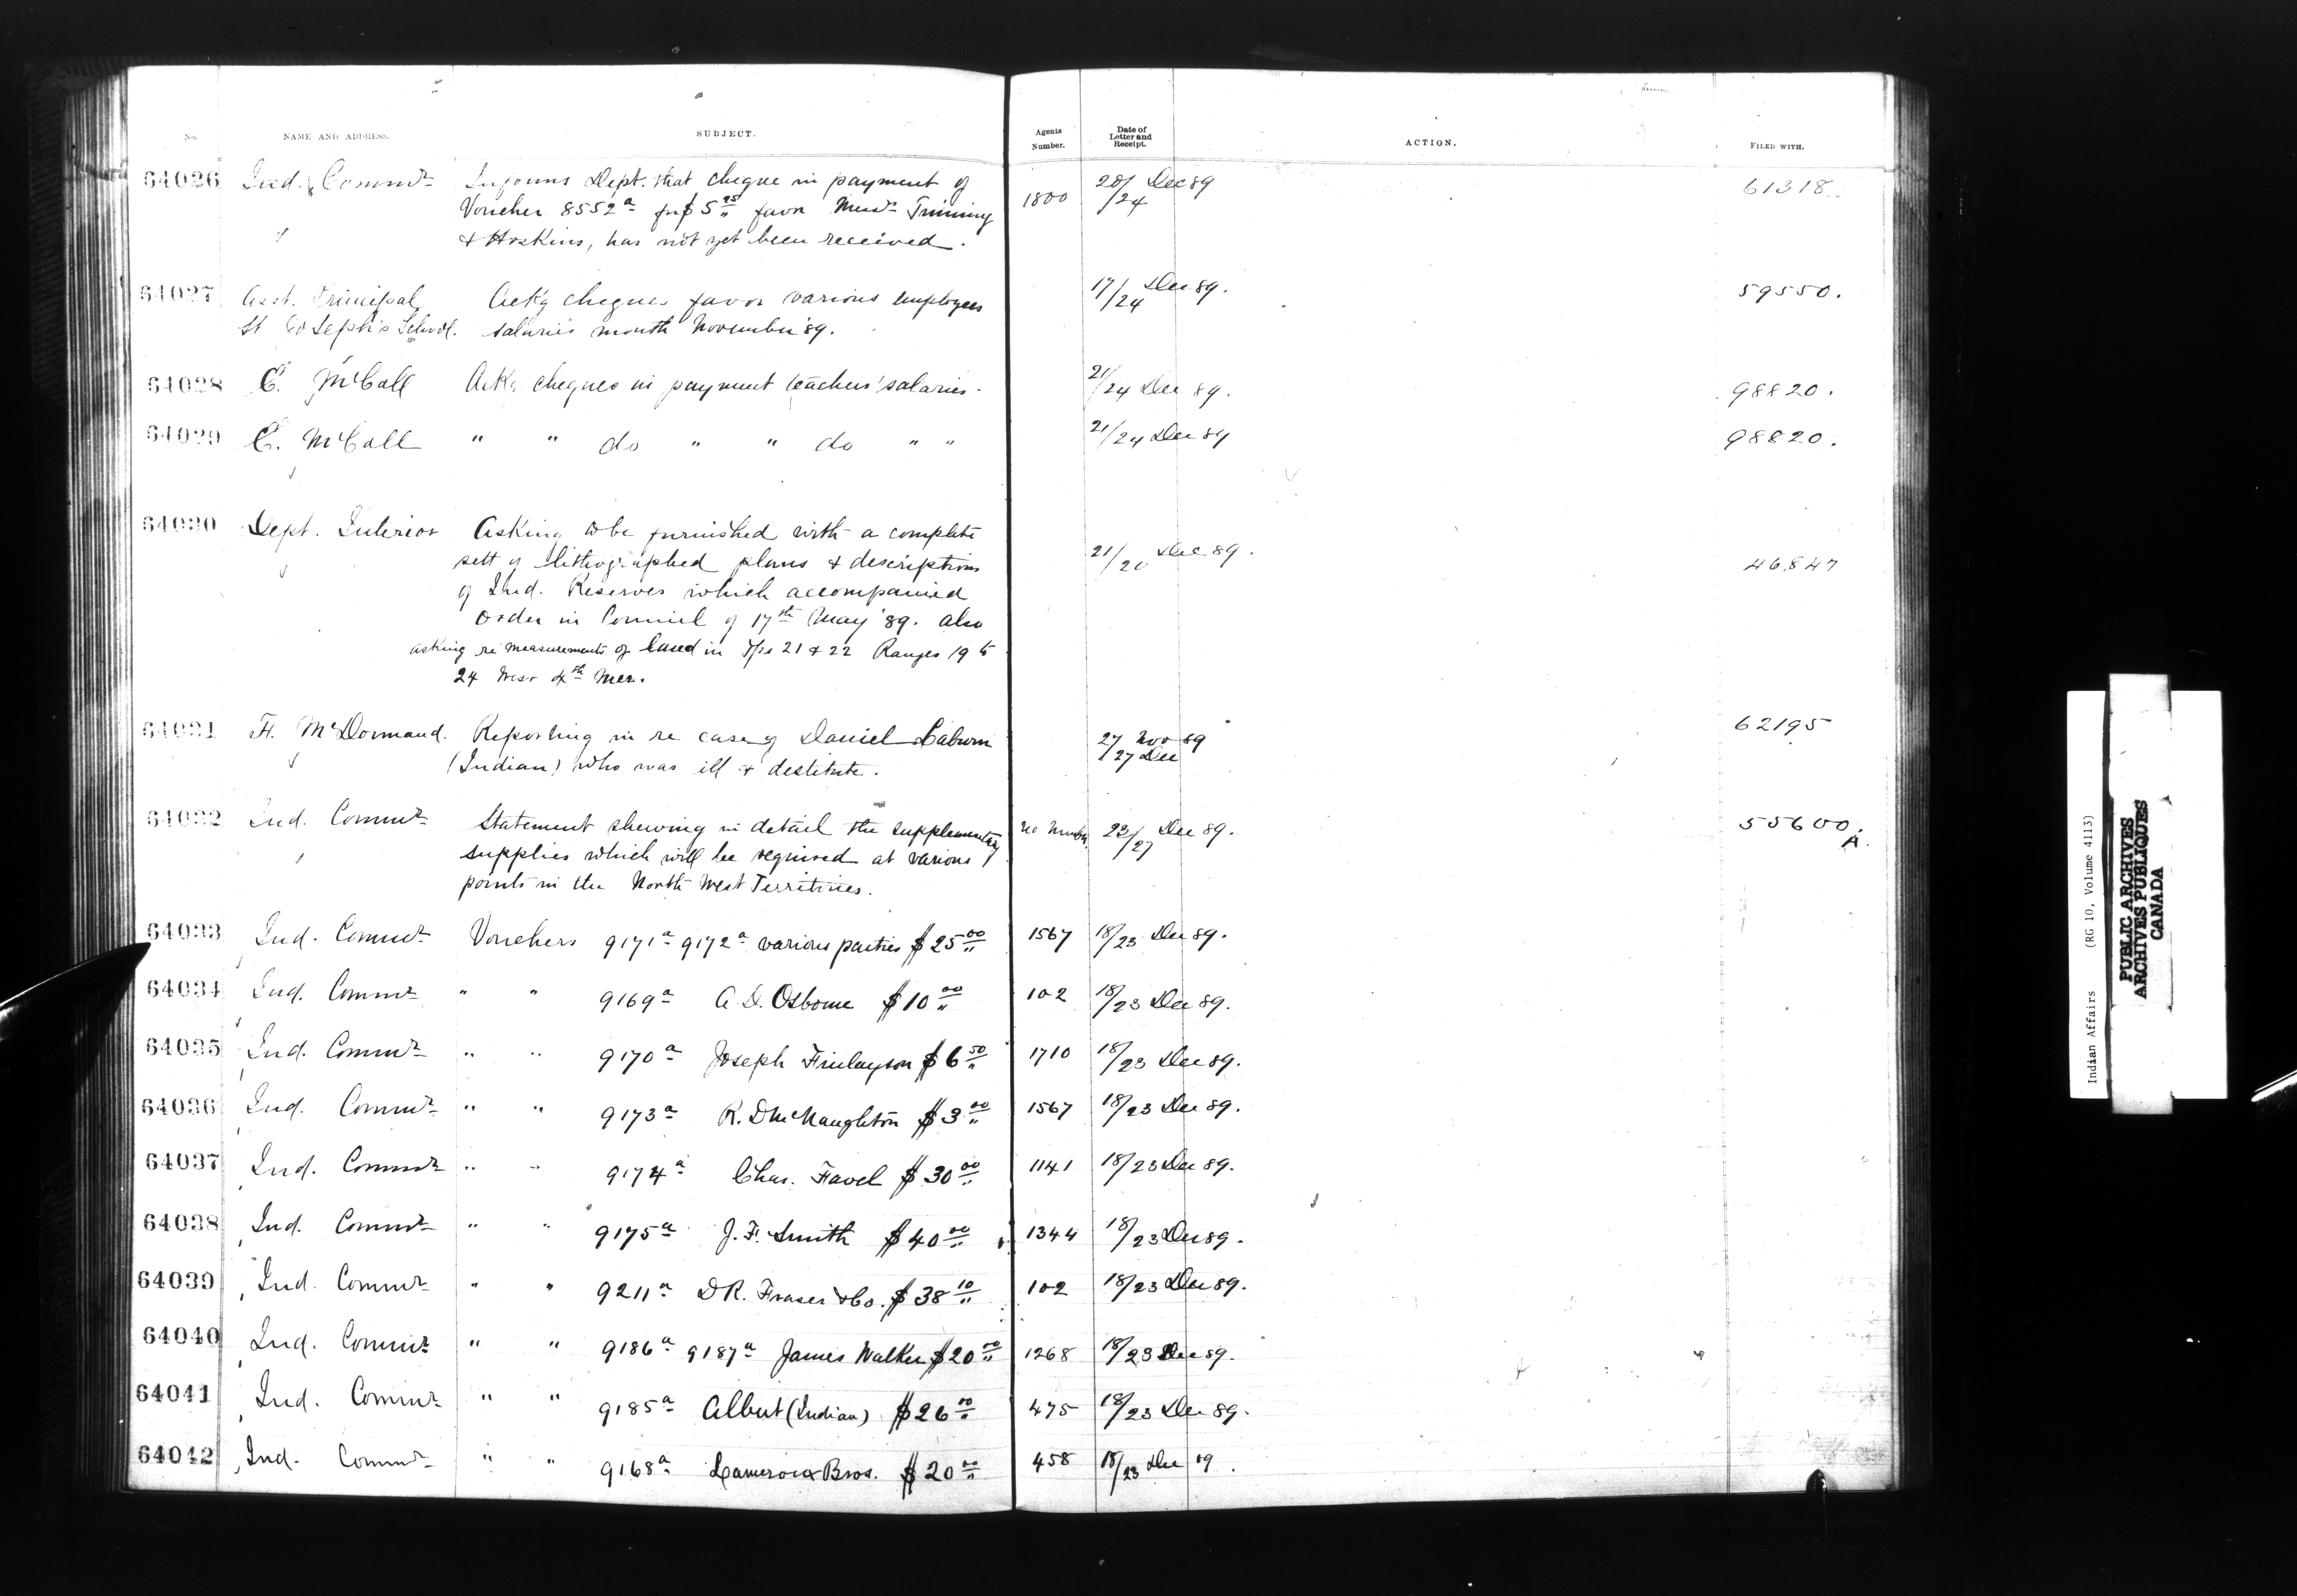 No. NAME AND ADDRESS. SUBJECT. Agents Number. Date of Letter and Receipt. ACTION. FILED WITH.
64026 Ind. Commr Informs Dept. that cheque in payment of 1800 20/24 Dec 89 61318
Voucher 8552a for $5 25 favor Messrs
& Hoskins, has not yet been received.
64027 Asst. Principal Ackg cheques favor various employees 17/24 Dec 89. 59550.
St Joseph's School. salaries month November '89.
64028 C. McCall Ackg cheques in payment teachers' salaries. 21/24 Dec 89. 98820.
64029 C. McCall " " do " " do " " 21/24 Dec 89 98820.
64030 Dept. Interior Asking to be furnished with a complete 21/ Dec 89. 46847
sett of lithographed plans & descriptions
of Ind. Reserves which accompanied
Order in Council of 17th May '89. also
asking re measurements of land in Tps 21 & 22 Ranges 19 to
24 West 4th Mer.
64031 H. McDormand. Reporting in re case of Daniel 27 Nov 89 62195
(Indian) who was ill & destitute. /27 Dec
64032 Ind. Commr Statement shewing in detail the supplementary No Number. 23/27 Dec 89. 55600.A.
supplies which will be required at various
points in the North West Territories.
64033 Ind. Commr Vouchers 9171a 9172a various parties $25 00 1567 18/23 Dec 89.
64034 Ind. Commr " " 9169a A. D. Osborne $10 00 102 18/23 Dec 89.
64035 Ind. Commr " " 9170a Joseph Finlayson $6 50 1710 18/23 Dec 89.
64036 Ind. Commr " " 9173a R. D McNaughton $3 00 1567 18/23 Dec 89.
64037 Ind. Commr " " 9174a Chas. Favel $30 00 1141 18/23 Dec 89.
64038 Ind. Commr " " 9175a J. F. Smith $40 00 1344 18/23 Dec 89.
64039 Ind. Commr " " 9211a D R. Fraser & Co. $38 10 102 18/23 Dec 89.
64040 Ind. Commr " " 9186a 9187a James Walker $20 00 1268 18/23 Dec 89.
64041 Ind. Commr " " 9185a Albert (Indian) $26 00 475 18/23 Dec 89.
64042 Ind. Commr " " 9168a Bros. $20 00 458 18/23 Dec 89.
Indian Affairs (RG 10, Volume 4113)
PUBLIC ARCHIVES
ARCHIVES PUBLIQUES
CANADA